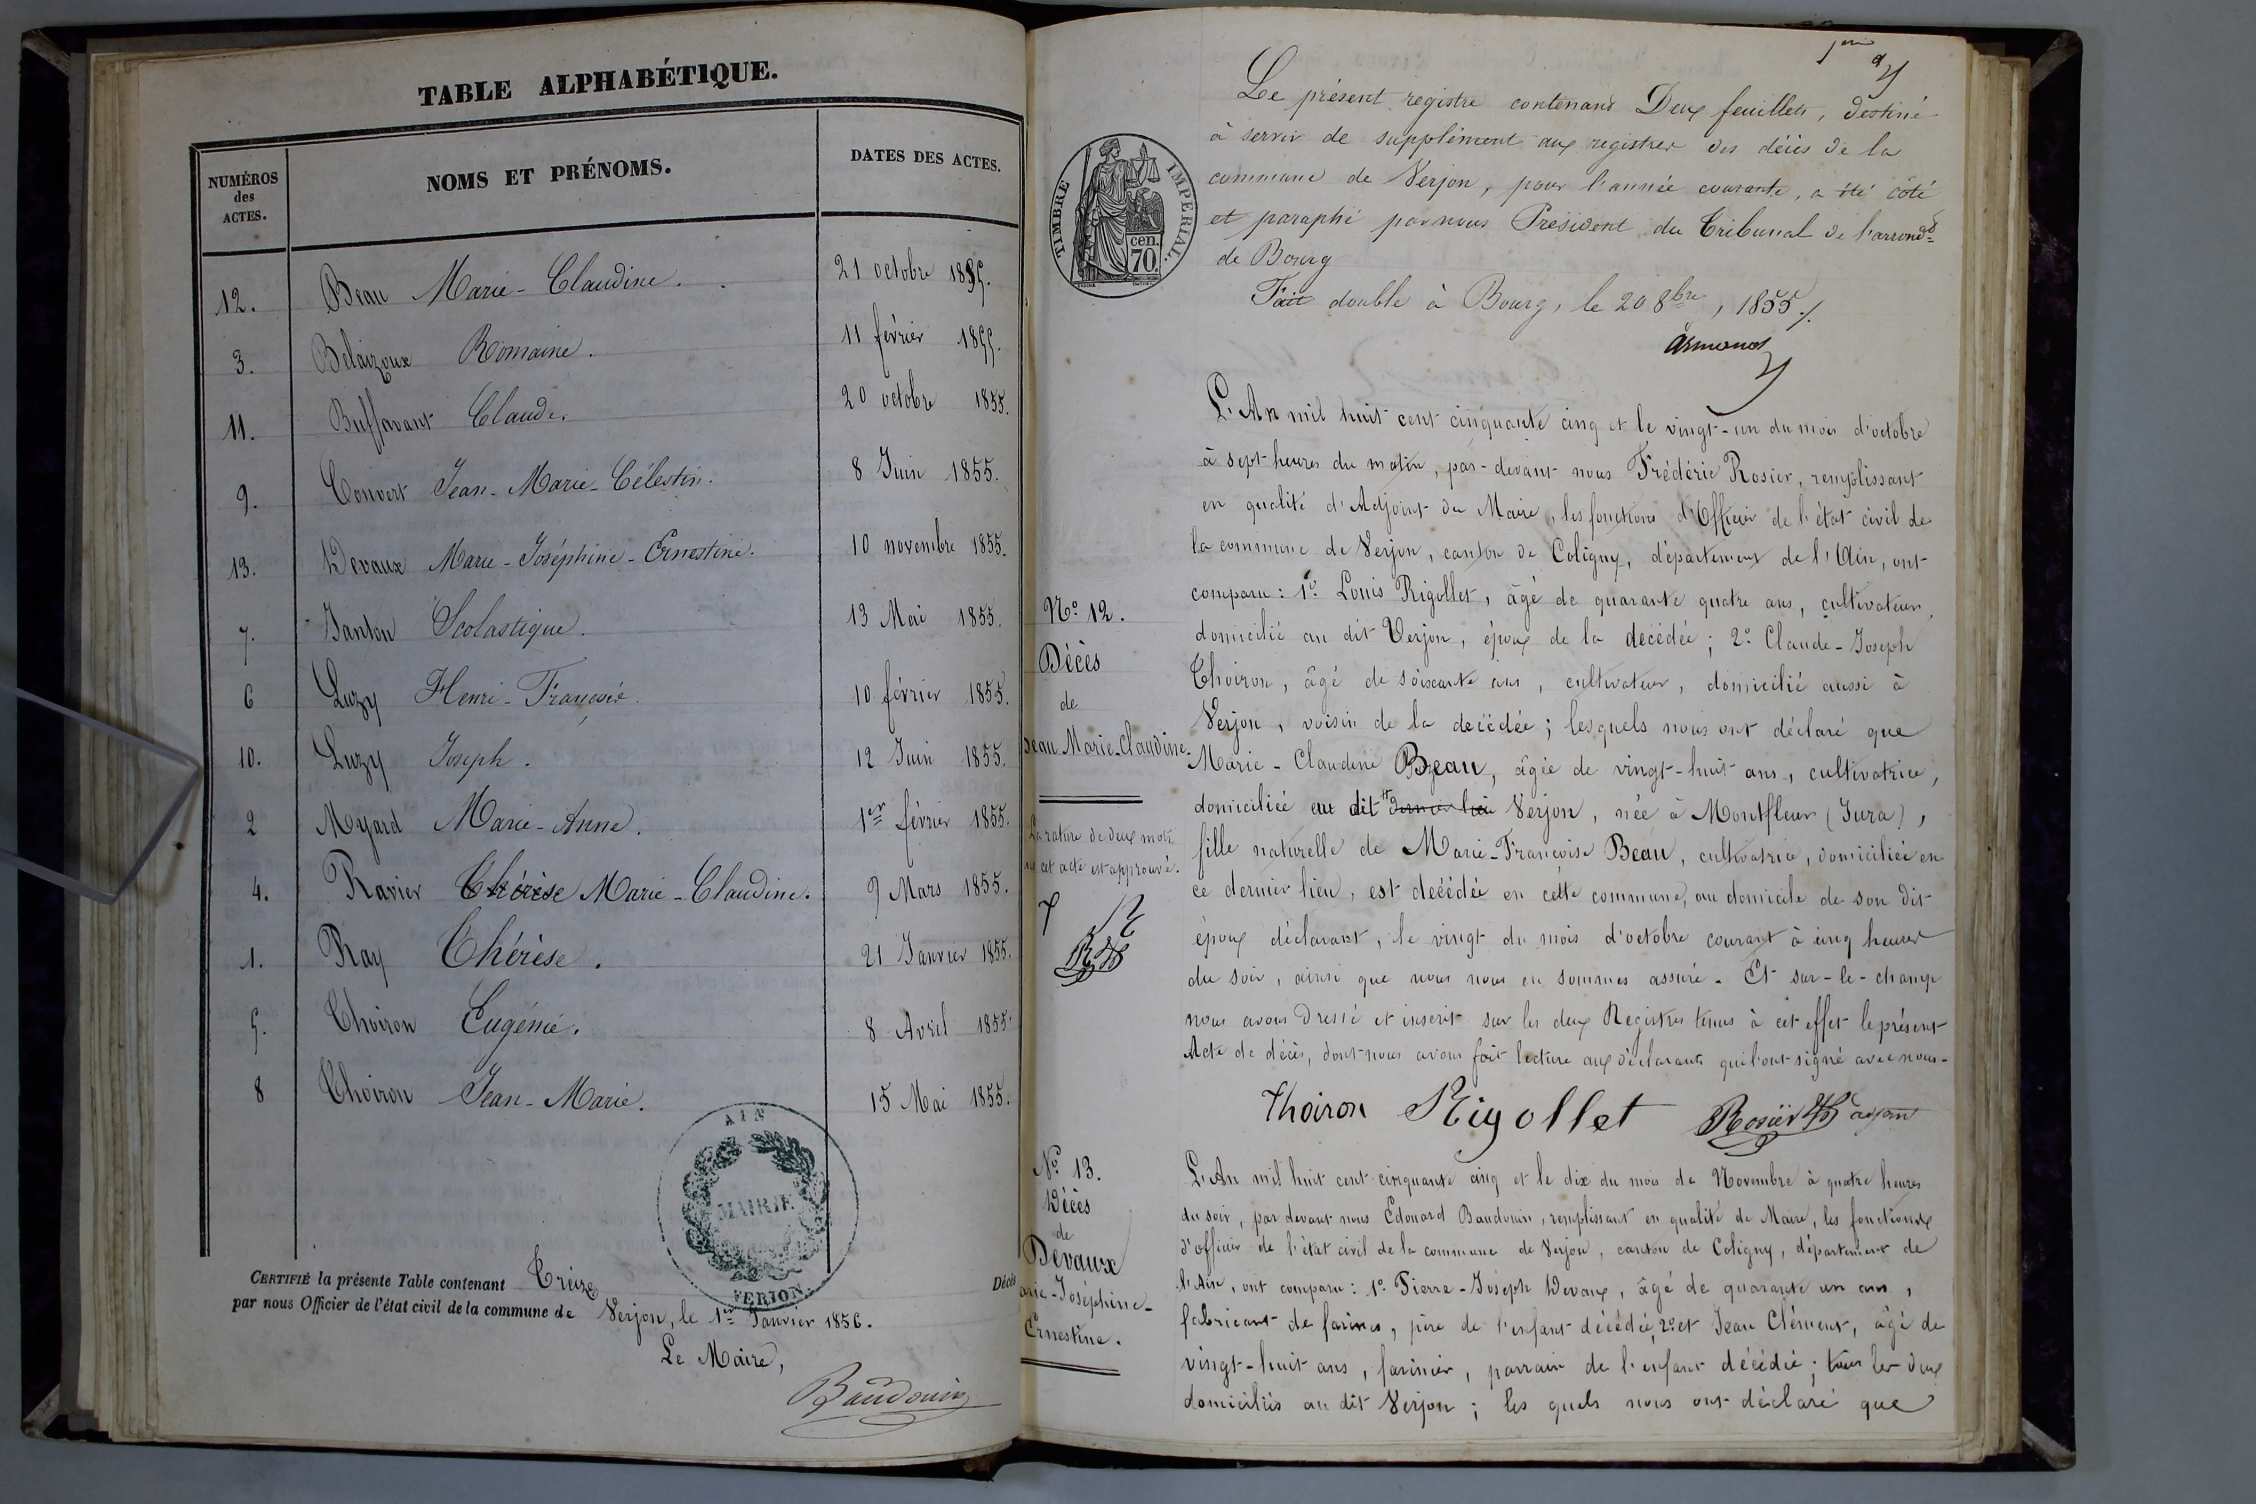 TABLE ALPHABÉTIQUE.
NUMÉROS des ACTES. NOMS ET PRÉNOMS. DATES DES ACTES.
12. Beau Marie-Claudine. 21 octobre 1855.
3. Belaizoux Romaine. 11 février 1855.
11. Buffavant Claude. 20 octobre 1855.
9. Convert Jean-Marie-Célestin. 8 Juin 1855.
13. Devaux Marie-Joséphine-Ernestine. 10 novembre 1855.
7. Janton Scolastique. 13 Mai 1855.
6 Luzy Henri-François. 10 février 1855.
10. Luzy Joseph. 12 Juin 1855.
2 Myard Marie-Anne. 1er février 1855.
4. Ravier Thérèse Marie-Claudine. 9 Mars 1855.
1. Ray Thérèse. 21 Janvier 1855.
5. Thoiron Eugénie. 8 Avril 1855.
8 Thoiron Jean-Marie. 15 Mai 1855.
AIN
MAIRIE
VERJON.
CERTIFIÉ la présente Table contenant Treize
par nous Officier de l'état civil de la commune de Verjon, le 1er Janvier 1856.
Décès
Le Maire,
Baudouin
1er
Le présent registre contenant Deux feuillets, destiné
à servir de supplément aux registres des décès de la
commune de Verjon, pour l'année courante, a été côté
et paraphé par nous Président du Tribunal de l'arrondt
de Bourg
Fait double à Bourg, le 20 8bre, 1855./.
TIMBRE IMPÉRIAL.
cen.
70.
L'An mil huit cent cinquante cinq et le vingt-un du mois d'octobre
à sept heures du matin, par-devant nous Frédéric Rosier, remplissant
en qualité d'Adjoint du Maire, les fonctions d'Officier de l'état civil de
la commune de Verjon, canton de Coligny, département de l'Ain, ont
comparu: 1o. Louis Rigollet, âgé de quarante quatre ans, cultivateur
domicilié au dit Verjon, époux de la décédée; 2o. Claude-Joseph
Thoiron, âgé de soixante ans, cultivateur, domicilié aussi à
Verjon, voisin de la décédée; lesquels nous ont déclaré que
Marie-Claudine Beau, âgée de vingt-huit ans, cultivatrice,
domiciliée au dit dernier lieu Verjon, née à Montfleur (Jura),
fille naturelle de Marie-Françoise Beau, cultivatrice, domiciliée en
ce dernier lieu, est décédée en cette commune, au domicile de son dit
époux déclarant, le vingt du mois d'octobre courant à cinq heures
du soir, ainsi que nous nous en sommes assuré. Et sur-le-champ
nous avons dressé et inscrit sur les deux Registres tenus à cet effet le présent
Acte de décès, dont nous avons fait lecture aux déclarants qui l'ont signé avec nous.
No. 12.
Décès
de
Beau Marie-Claudine.
La rature de deux mots
cet acte est approuvé.
Thoiron Rigollet Rosier adjoint
No. 13.
Décès
de
Devaux
Marie-Joséphine-
Ernestine.
L'An mil huit cent cinquante cinq et le dix du mois de Novembre à quatre heures
du soir, par devant nous Edouard Baudouin, remplissant en qualité de Maire, les fonctions
d'officier de l'état civil de la commune de Verjon, canton de Coligny, département de
l'Ain, ont comparu: 1o. Pierre-Joseph Devaux, âgé de quarante un ans,
fabricant de farines, père de l'enfant décédée, 2o. et Jean Clément, âgé de
vingt-huit ans, farinier, parrain de l'enfant décédée; tous les deux
domiciliés au dit Verjon; les quels nous ont déclaré que